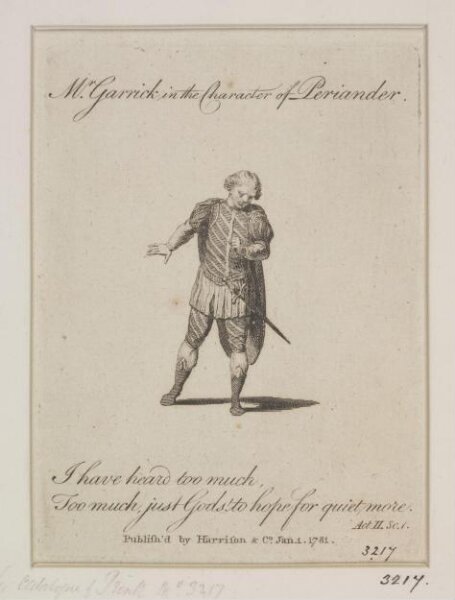 Mr. Garrick in the Character of Periander.
I have heard too much,
Too much, just Gods! to hope for quiet more.
Act. II. Sc. 1.
Publish'd by Harrison & Co. Jan. 1. 1781.
3217
3217.
Catalogue of Prints No. 3217